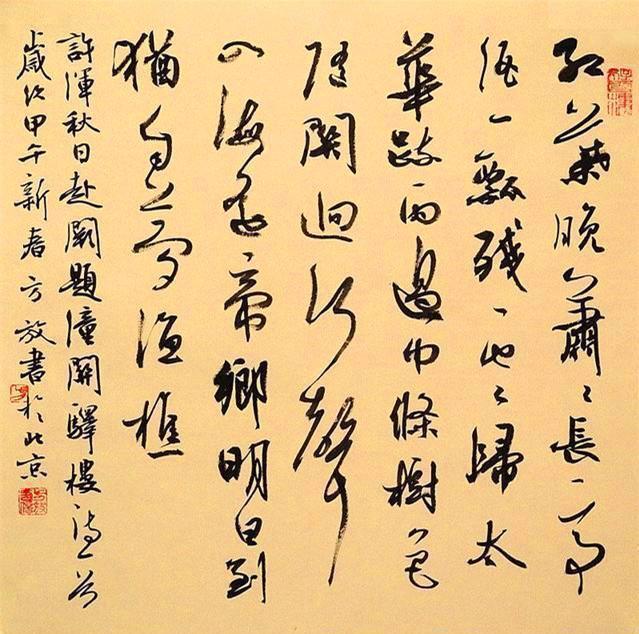 紅葉晚蕭〻長亭
酒一瓢殘雲歸太
華疏雨過中條樹色
隨關迥河聲
入海遙帝鄉明日到
猶自夢漁樵
許渾秋日赴闕題潼關驛樓詩一首
歲次甲午新春方放書於北京